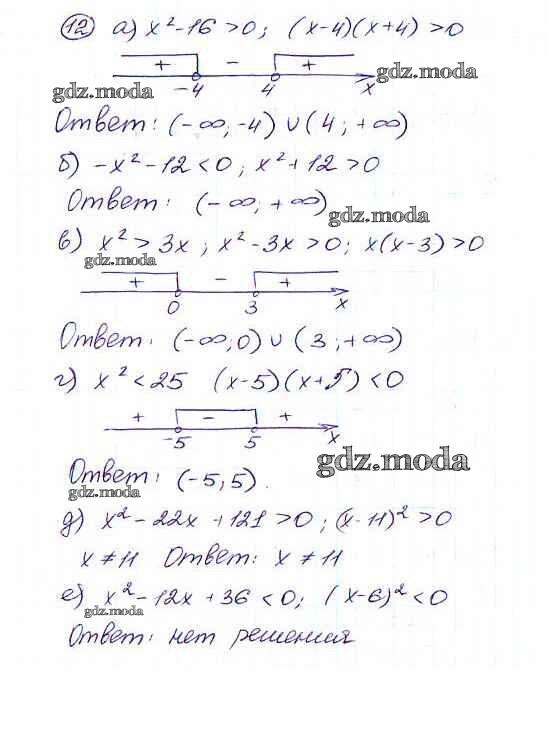 12 а) x² - 16 > 0; (x-4)(x+4) > 0
+ - +
-4 4 x
gdz.moda gdz.moda
Ответ: (-∞; -4) ∪ (4; +∞)
б) -x² - 12 < 0; x² + 12 > 0
Ответ: (-∞; +∞)
gdz.moda
в) x² > 3x; x² - 3x > 0; x(x-3) > 0
gdz.moda
+ - +
0 3 x
Ответ: (-∞; 0) ∪ (3; +∞)
г) x² < 25 (x-5)(x+5) < 0
+ - +
-5 5 x
gdz.moda
Ответ: (-5; 5).
gdz.moda
д) x² - 22x + 121 > 0; (x-11)² > 0
x ≠ 11 Ответ: x ≠ 11
е) x² - 12x + 36 < 0; (x-6)² < 0
gdz.moda
Ответ: нет решения